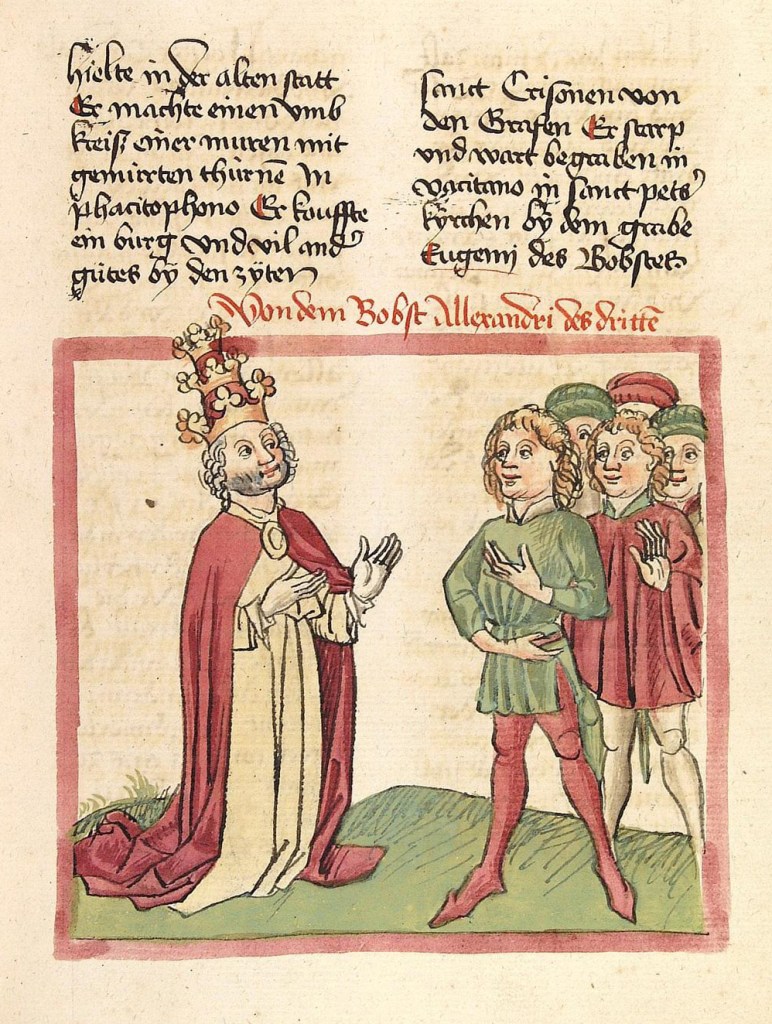 hielte in der alten statt
Er machte einen vmb
kreisz einer muren mit
gemurten thurnē In
phacitophono Er kouffte
ein burg vnd vil and'
gutes by den zyten
sanct Crisonen von
den Grafen Er starp
vnd wart begraben in
vacitano in sanct pets'
kyrchen by dem grabe
Eugenij des Bobstes
Von dem Bobst Allexandri des drittē